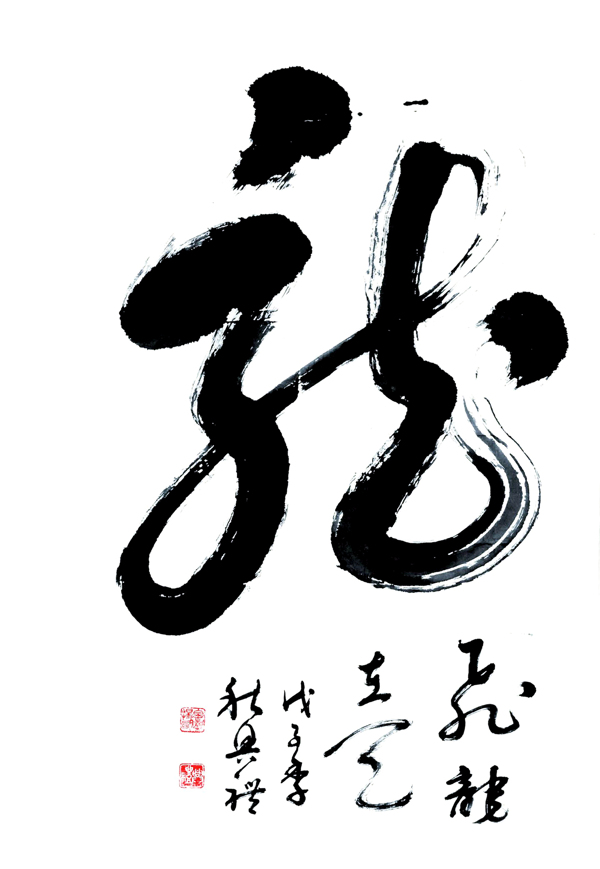 龍
飛龍
在天
戊子季
秋